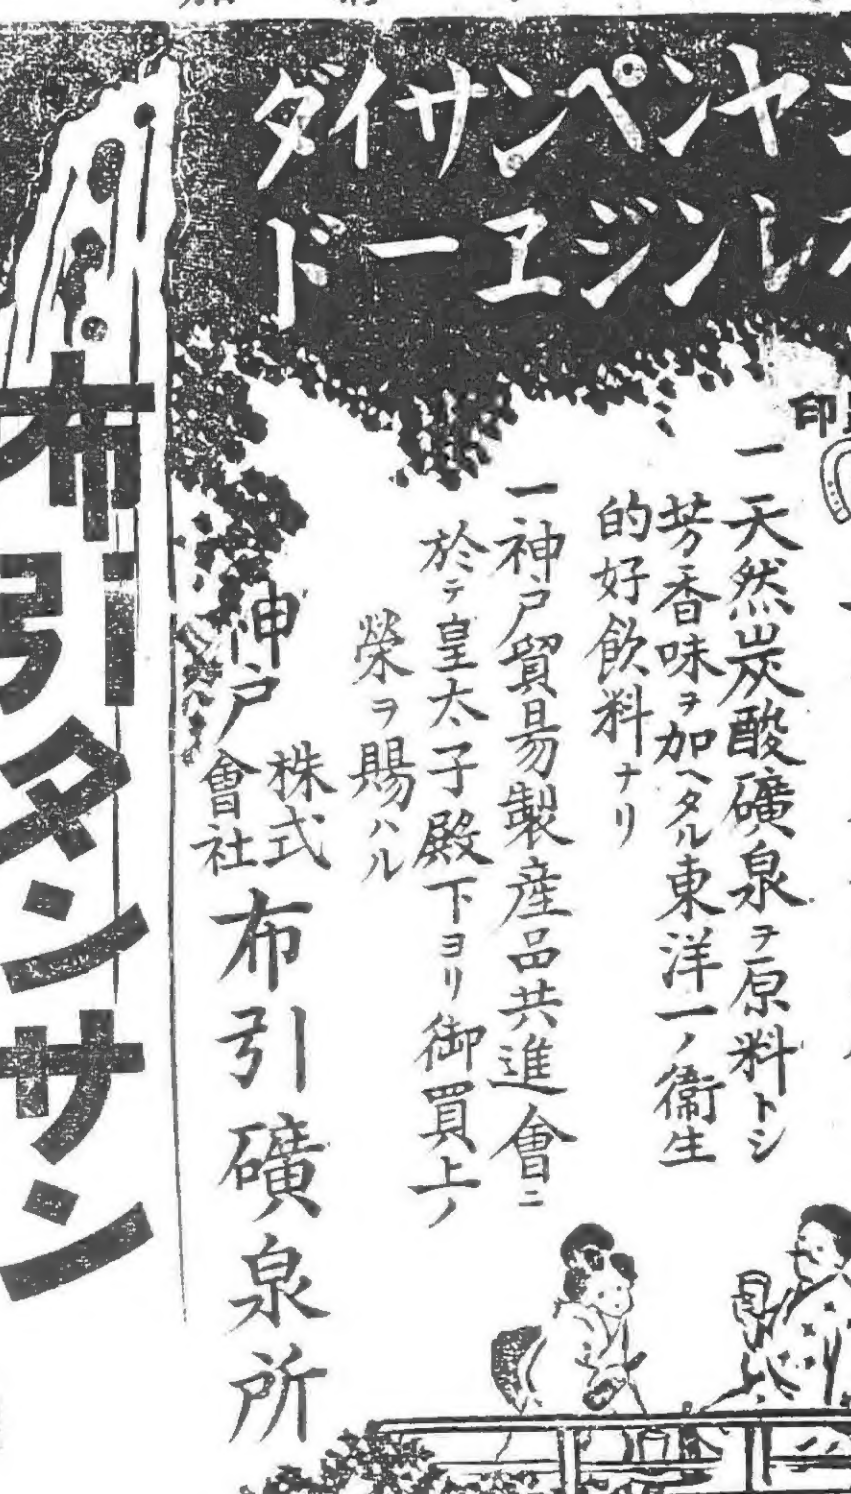 ヤンペンサイダ
レンジヱード
印
一天然炭酸礦泉ヲ原料トシ
芳香味ヲ加ヘタル東洋一ノ衞生
的好飲料ナリ
一神戸貿易製産品共進會ニ
於テ皇太子殿下ヨリ御買上ノ
榮ヲ賜ハル
神戸
株式
會社
布引礦泉所
布引タンサン